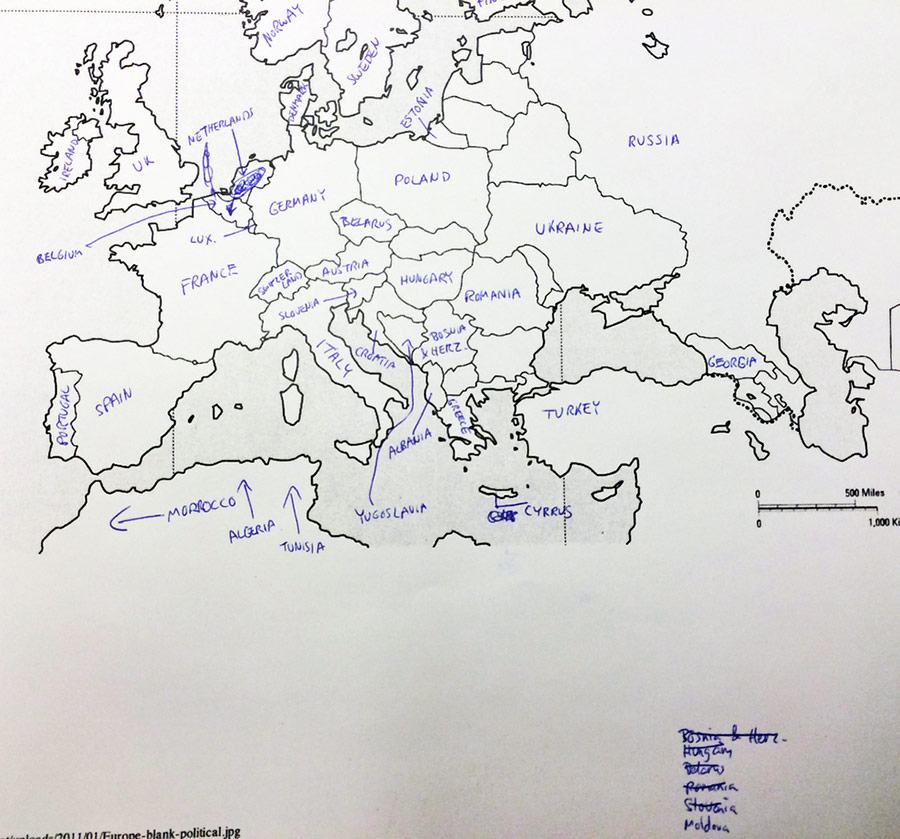 NORWAY
SWEDEN
DENMARK
ESTONIA
NETHERLANDS
IRELAND
UK
RUSSIA
POLAND
GERMANY
BELARUS
UKRAINE
BELGIUM
LUX.
FRANCE
SWITZER
LAND
AUSTRIA
HUNGARY
ROMANIA
SLOVENIA
CROATIA
BOSNIA
& HERZ.
ITALY
GEORGIA
PORTUGAL
SPAIN
GREECE
TURKEY
ALBANIA
MORROCCO
ALGERIA
TUNISIA
YUGOSLAVIA
CYRRUS
0 500 Miles
0 1,000 Ki
Bosnia & Herz.
Hungary
Belarus
Romania
Slovenia
Moldova
/2011/01/Europe-blank-political.jpg